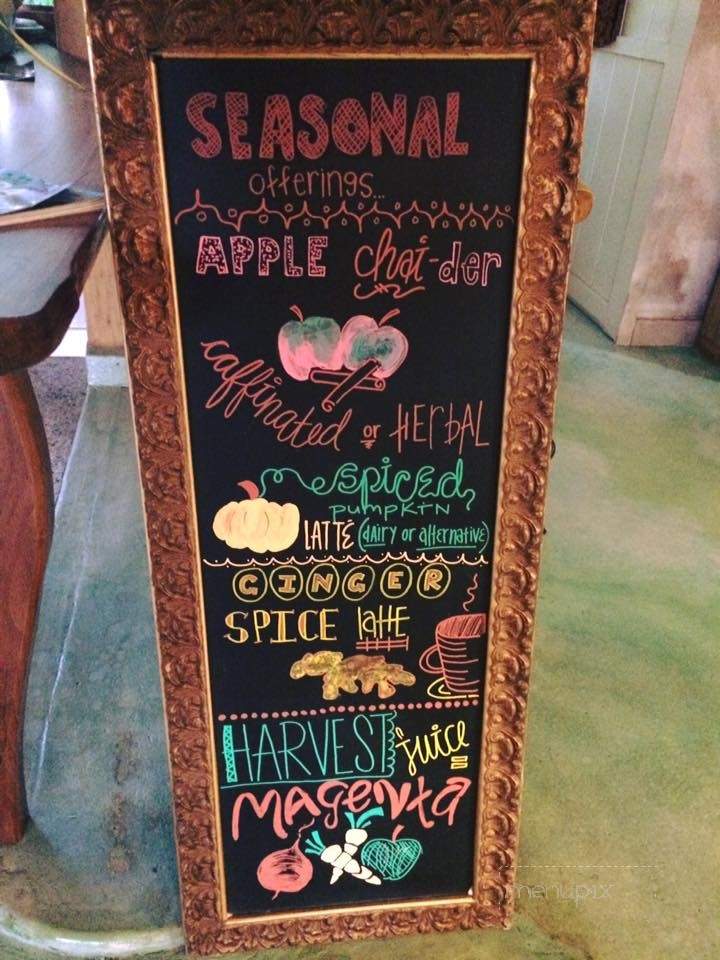 SEASONAL
offerings...
APPLE chai-der
caffinated or HERBAL
spiced
pumpkin
LATTE (dairy or alternative)
GINGER
SPICE latte
HARVEST juice
MAGENTA
menupix